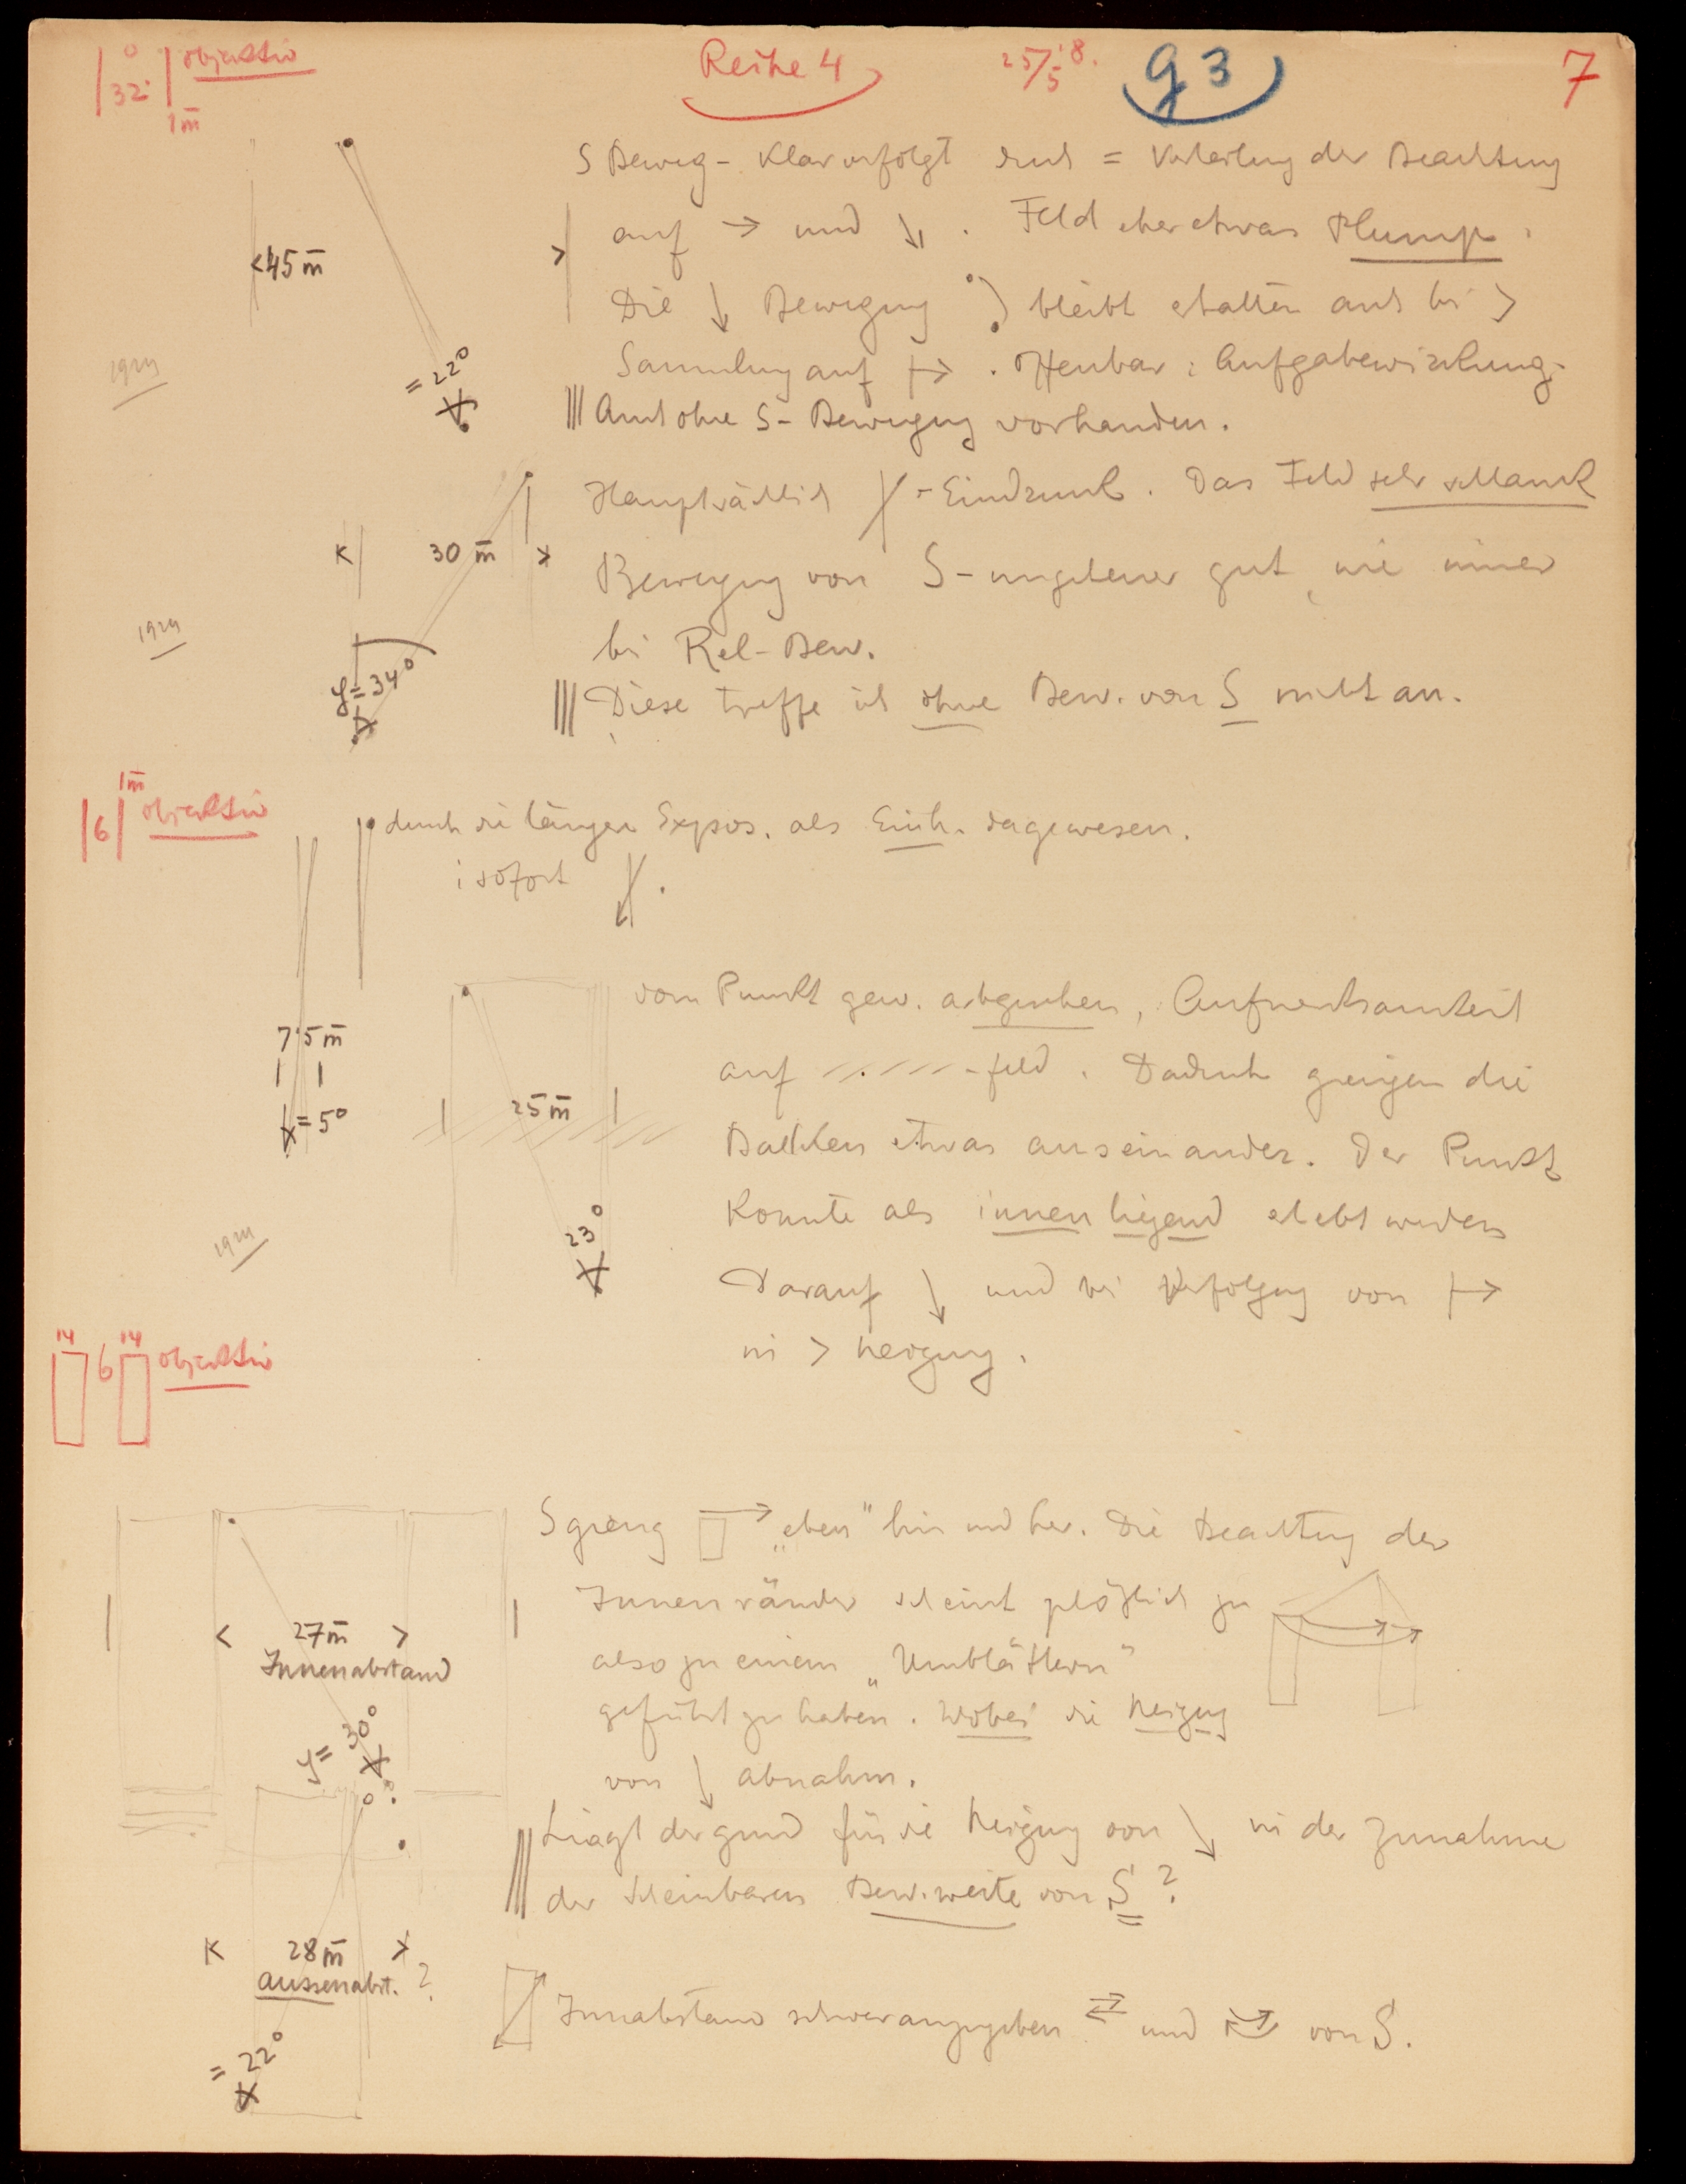 0
32
1 m
objektiv
Reihe 4
25/5 18.
g 3
7
S Beweg- klar verfolgt durch = Verteilung der Beachtung
auf → und ↘ . Feld eher etwas plump.
<45 m >
Die ↓ Bewegung bleibt erhalten auch bei >
Sammlung auf ↦ . Offenbar: Aufgabewirkung.
= 22°
Auch ohne S-Bewegung vorhanden.
Hauptsächlich -Eindruck. Das Feld sehr schlank
< 30 m >
Bewegung von S- ungeheuer gut, wie immer
bei Rel-Bew.
= 34°
Diese treffe ich ohne Bew. von S nicht an.
6
1 m
objektiv
durch die längere Expos. als Einh. dagewesen.
: sofort
vom Punkt gew. abgesehen, Aufmerksamkeit
7,5 m
auf -feld. Dadurch gingen die
= 5°
25 m
Balken etwas auseinander. Der Punkt
konnte als innen liegend erlebt werden
23°
Darauf ↓ und bei Verfolgung von ↦
in > Neigung.
14
6
14
objektiv
S gieng "eben" hin und her. Die Beachtung der
Innenränder scheint plötzlich zu
< 27 m >
Innenabstand
also zu einem "Umblättern"
geführt zu haben. Wobei die Neigung
= 30°
von ↓ abnahm.
Liegt der Grund für die Neigung von ↘ in der Zunahme
der scheinbaren Bew.weite von S?
< 28 m >
aussenabst. ?
Innabstand schwer anzugeben ⇄ und von S.
= 22°